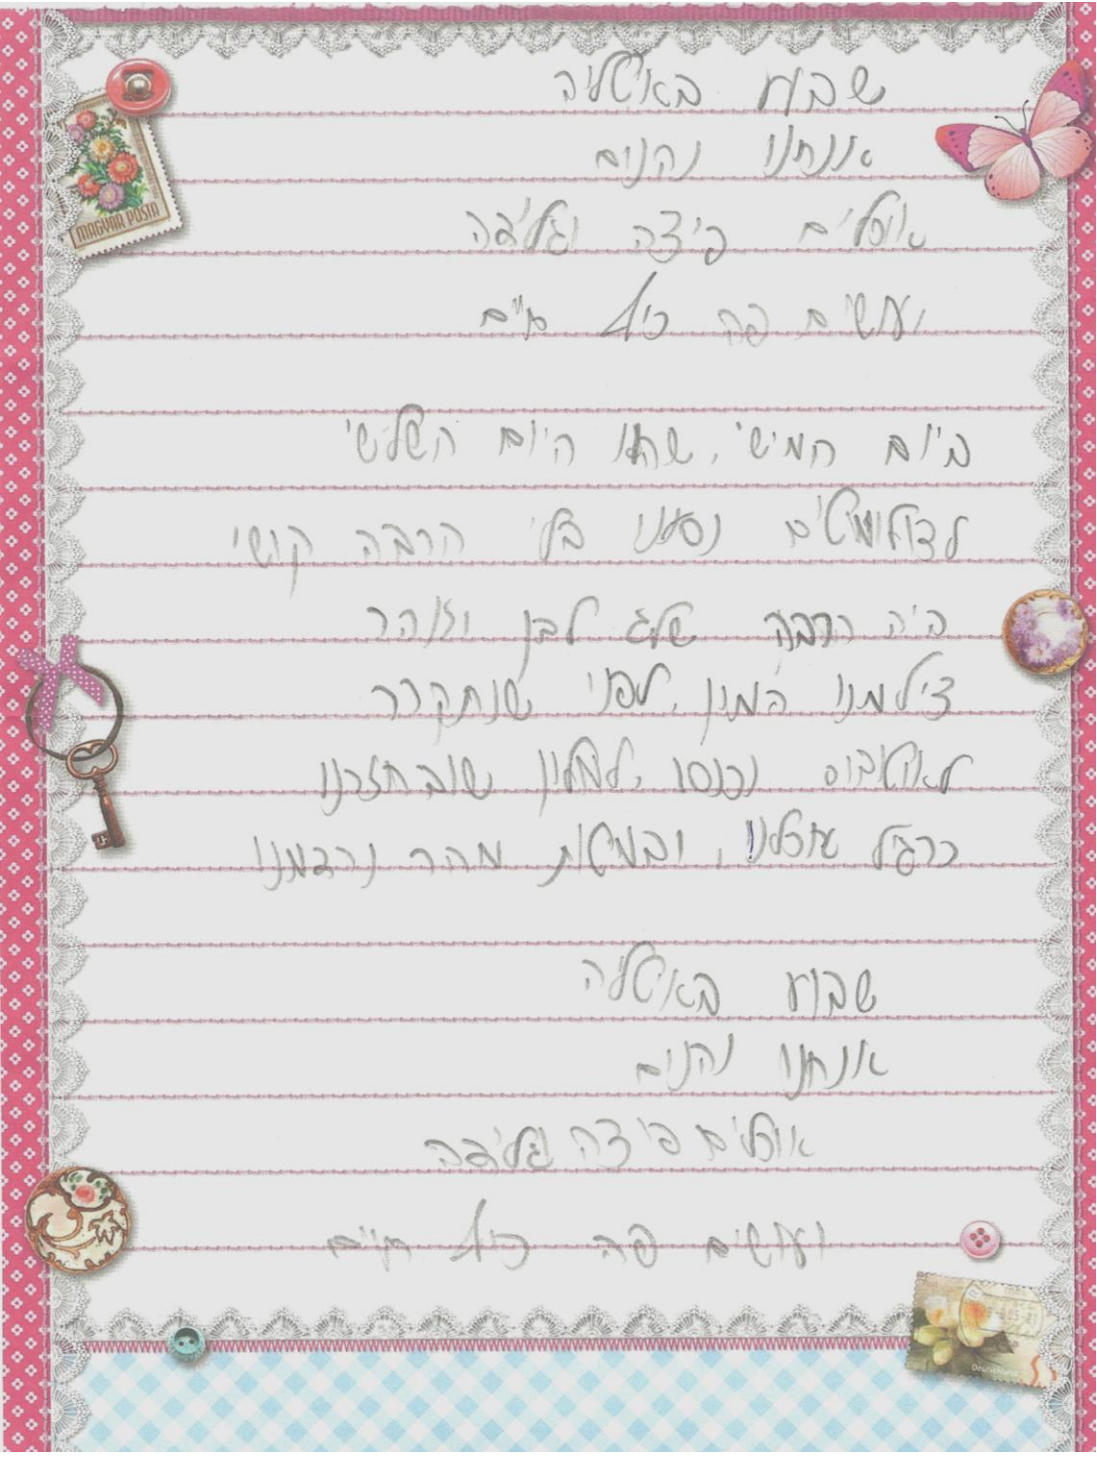 שבוע באיטליה
אנחנו נהנים
אוכלים פיצה וגלידה
ועושים פה כיף חיים
ביום חמישי, שהוא היום השלישי
לדולומיטים נסענו בלי הרבה קושי
היה הרבה שלג לבן וזוהר
צילמנו המון, לפני שנתקרר
לאוטובוס נכנסנו, למלון שוב חזרנו
כרגיל אכלנו, ובמיטות מהר נרדמנו
שבוע באיטליה
אנחנו נהנים
אוכלים פיצה וגלידה
ועושים פה כיף חיים
MAGYAR POSTA